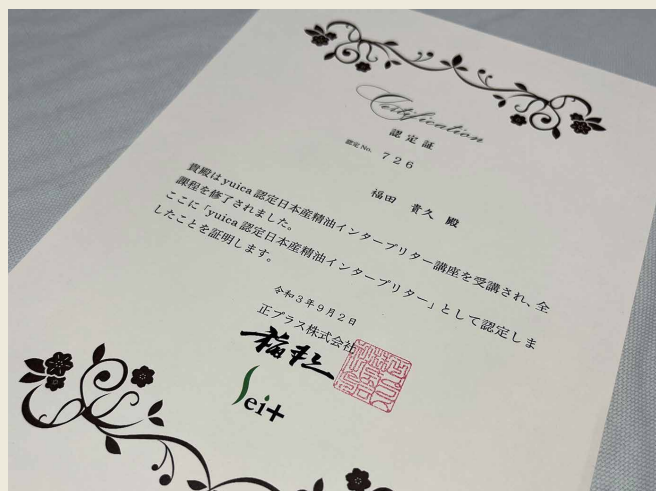 Certification
認定証
認定No. 726
福田 貴久 殿
貴殿はyuica認定日本産精油インタープリター講座を受講され、全
課程を修了されました。
ここに「yuica認定日本産精油インタープリター」として認定しま
したことを証明します。
令和3年9月2日
正プラス株式会社
Sei+